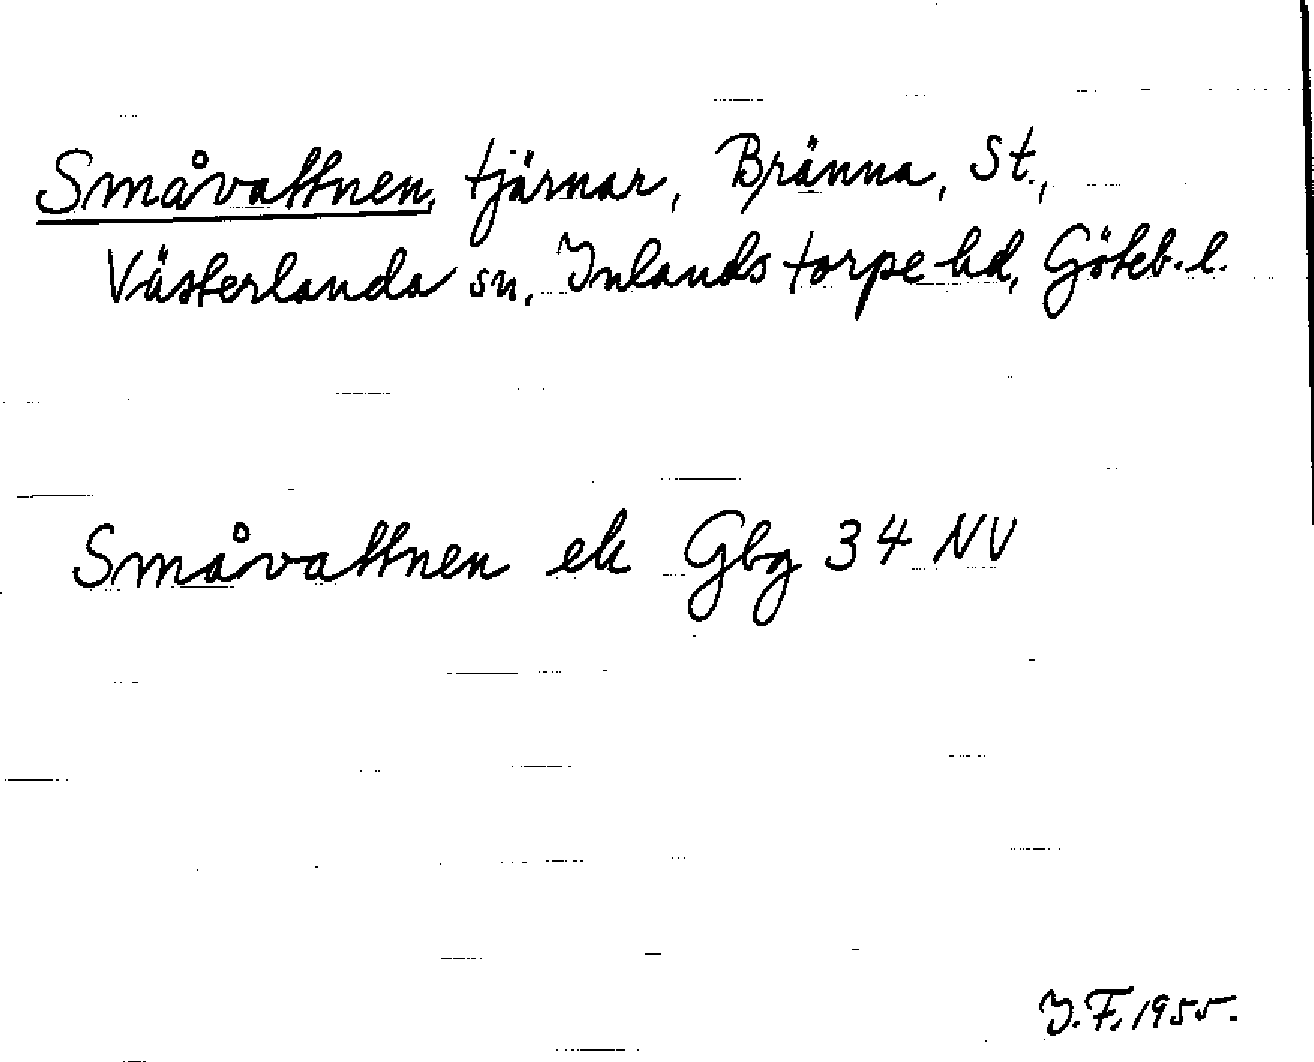 Småvattnen, tjärnar, Bränna, St.,
Västerlanda sn, Inlands torpe hd, Göteb. l.
Småvattnen ek Gbg 34 NV
J.F. 1955.